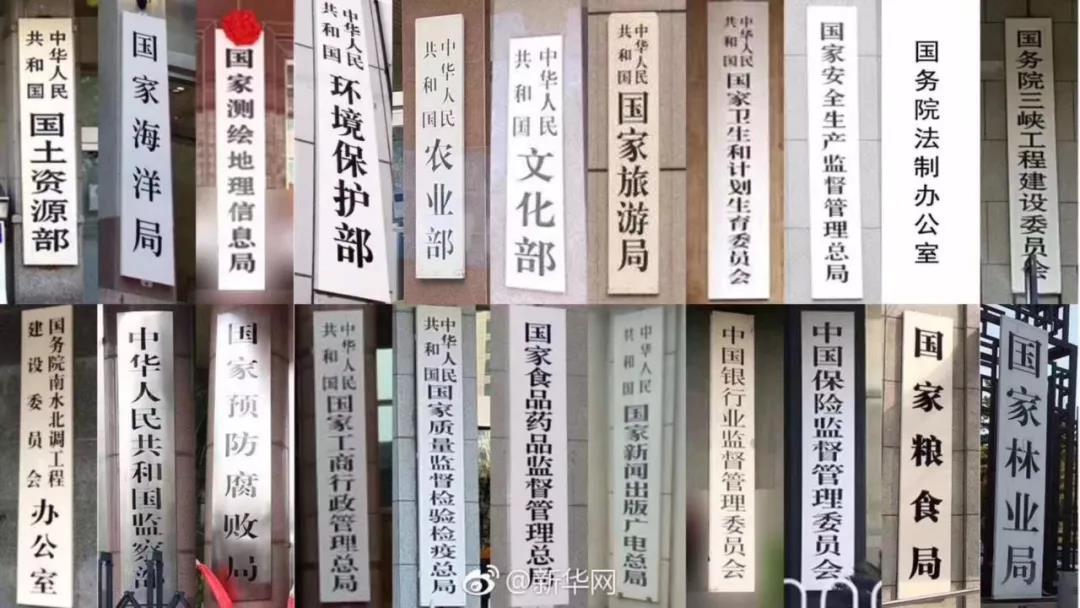 中华人民
共和国
国土资源部
国家海洋局
国家测绘地理信息局
中华人民
共和国
环境保护部
中华人民
共和国
农业部
中华人民
共和国
文化部
中华人民
共和国
国家旅游局
中华人民
共和国
国家卫生和计划生育委员会
国家安全生产监督管理总局
国务院法制办公室
国务院三峡工程建设委员会
国务院南水北调工程
建设委员会
办公室
中华人民共和国监察部
国家预防腐败局
中华人民
共和国
国家工商行政管理总局
中华人民
共和国
国家质量监督检验检疫总局
国家食品药品监督管理总局
中华人民
共和国
国家新闻出版广电总局
中国银行业监督管理委员会
中国保险监督管理委员会
国家粮食局
国家林业局
@新华网